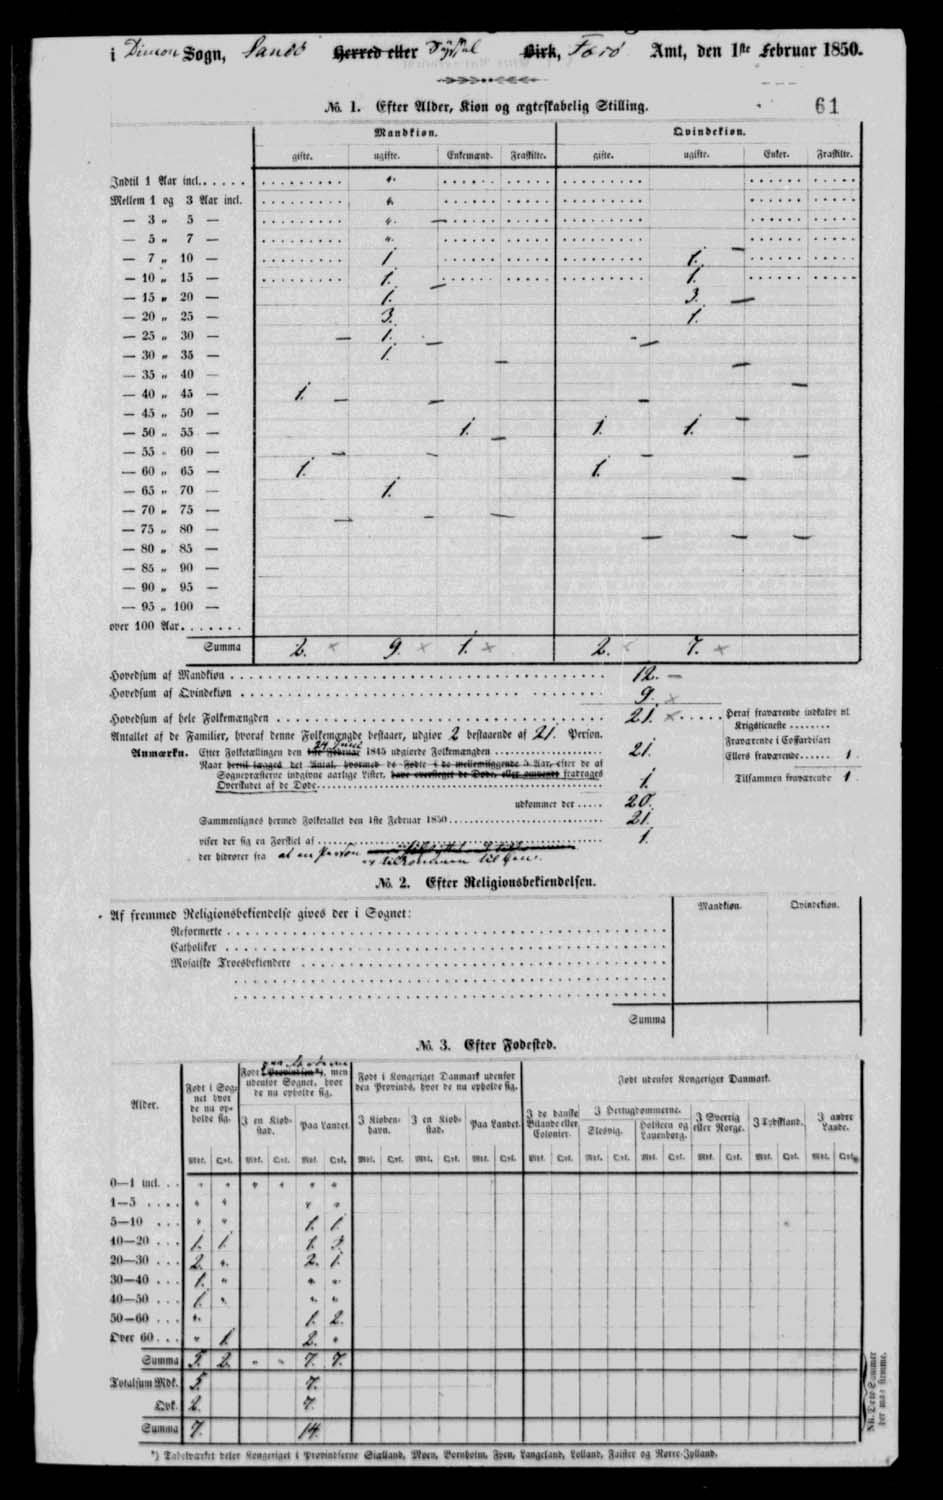 i Dimon Sogn, Sandö Herred eller Syssel Birk, Færö Amt, den 1ste Februar 1850.
61
No. 1. Efter Alder, Kiøn og ægteskabelig Stilling.
Mandkiøn. Qvindekiøn.
gifte. ugifte. Enkemænd. Fraskilte. gifte. ugifte. Enker. Fraskilte.
Indtil 1 Aar incl. . . . . . "
Mellem 1 og 3 Aar incl. "
— 3 „ 5 — " —
— 5 „ 7 — "
— 7 „ 10 — 1. 1. —
— 10 „ 15 — 1. — 1.
— 15 „ 20 — 1. 3. —
— 20 „ 25 — 3. 1.
— 25 „ 30 — — 1. — —
— 30 „ 35 — 1. —
— 35 „ 40 — — —
— 40 „ 45 — 1. — — —
— 45 „ 50 — —
— 50 „ 55 — 1. — 1. 1.
— 55 „ 60 — — — — —
— 60 „ 65 — 1. 1. —
— 65 „ 70 — 1.
— 70 „ 75 — — — —
— 75 „ 80 — — — —
— 80 „ 85 —
— 85 „ 90 —
— 90 „ 95 —
— 95 „ 100 —
over 100 Aar. . . . . . .
Summa 2. × 9. × 1. × 2. × 7. ×
Hovedsum af Mandkiøn 12. —
Hovedsum af Qvindekiøn 9. ×
Hovedsum af hele Folkemængden 21. ×
Heraf fraværende indkaldte til
Krigstieneste
Antallet af de Familier, hvoraf denne Folkemængde bestaaer, udgiør 2 bestaaende af 21. Person.
Fraværende i Coffardifart
Ellers fraværende 1
Tilsammen fraværende 1
Anmærkn. Efter Folketællingen den 1ste Februar 1845 udgiorde Folkemængden 21.
Naar hertil lægges det Antal, hvormed de Fødte i de mellemliggende 5 Aar, efter de af
Sognepræsterne indgivne aarlige Lister, have oversteget de Døde, eller omvendt fradrages
Overskudet af de Døde 1.
udkommer der 20.
Sammenlignes hermed Folketallet den 1ste Februar 1850 21.
viser der sig en Forskiel af 1.
der hidrører fra at en Person
er tilkommen til Øen.
No. 2. Efter Religionsbekiendelsen.
Mandkiøn. Qvindekiøn.
Af fremmed Religionsbekiendelse gives der i Sognet:
Reformerte
Catholiker
Mosaiske Troesbekiendere
Summa
No. 3. Efter Fødested.
Alder.
Født i Sognet hvor de nu opholde sig.
Født i Provindsen*), men udenfor Sognet, hvor de nu opholde sig.
Født i Kongeriget Danmark udenfor den Provinds, hvor de nu opholde sig.
Født udenfor Kongeriget Danmark.
I en Kiøbstad. Paa Landet. I Kiøbenhavn. I en Kiøbstad. Paa Landet. I de danske Bilande eller Colonier. I Hertugdømmerne. I Sverrig eller Norge. I Tydskland. I andre Lande.
Slesvig. Holsteen og Lauenborg.
Mdk. Qvk. Mdk. Qvk. Mdk. Qvk. Mdk. Qvk. Mdk. Qvk. Mdk. Qvk. Mdk. Qvk. Mdk. Qvk. Mdk. Qvk. Mdk. Qvk. Mdk. Qvk. Mdk. Qvk.
0—1 incl. . . " " " " " "
1—5 . . . . " " " "
5—10 . . . " " 1. 1.
10—20 . . . 1. 1. 1. 3.
20—30 . . . 2. " 2. 1.
30—40 . . . 1. " " "
40—50 . . . 1. " " "
50—60 . . . " 1. 2.
Over 60 . . . " 1. 2. "
Summa 5. 2. " " 7. 7.
Totalsum Mdk. 5. 7.
Qvk. 2. 7.
Summa 7. 14.
*) Tabelværket deler Kongeriget i Provindserne Siælland, Møen, Bornholm, Fyen, Langeland, Lolland, Falster og Nørre-Jylland.